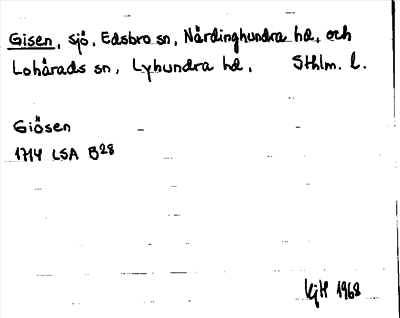 Gisen, sjö, Edsbro sn, Närdinghundra hd, och
Lohärads sn, Lyhundra hd, Sthlm. l.
Giösen
1714 LSA B28
KjH 1968